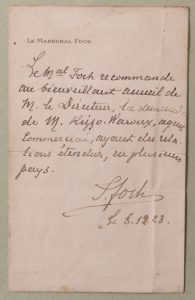 LE MARÉCHAL FOCH
Le Mal Foch recommande
au bienveillant accueil de
M. le Directeur, la demande
de M. Rizzo-Warocx, agent
Commercial, ayant des rela-
tions étendues, en plusieurs
pays.
F. Foch
Le 8.12.23.